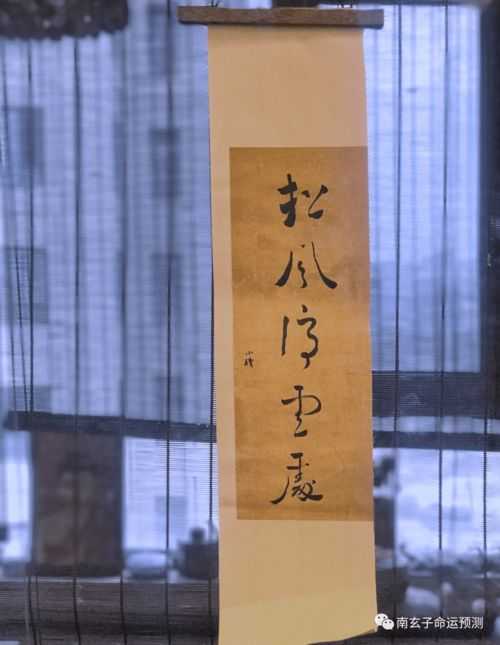 松风停云处
南玄子命运预测